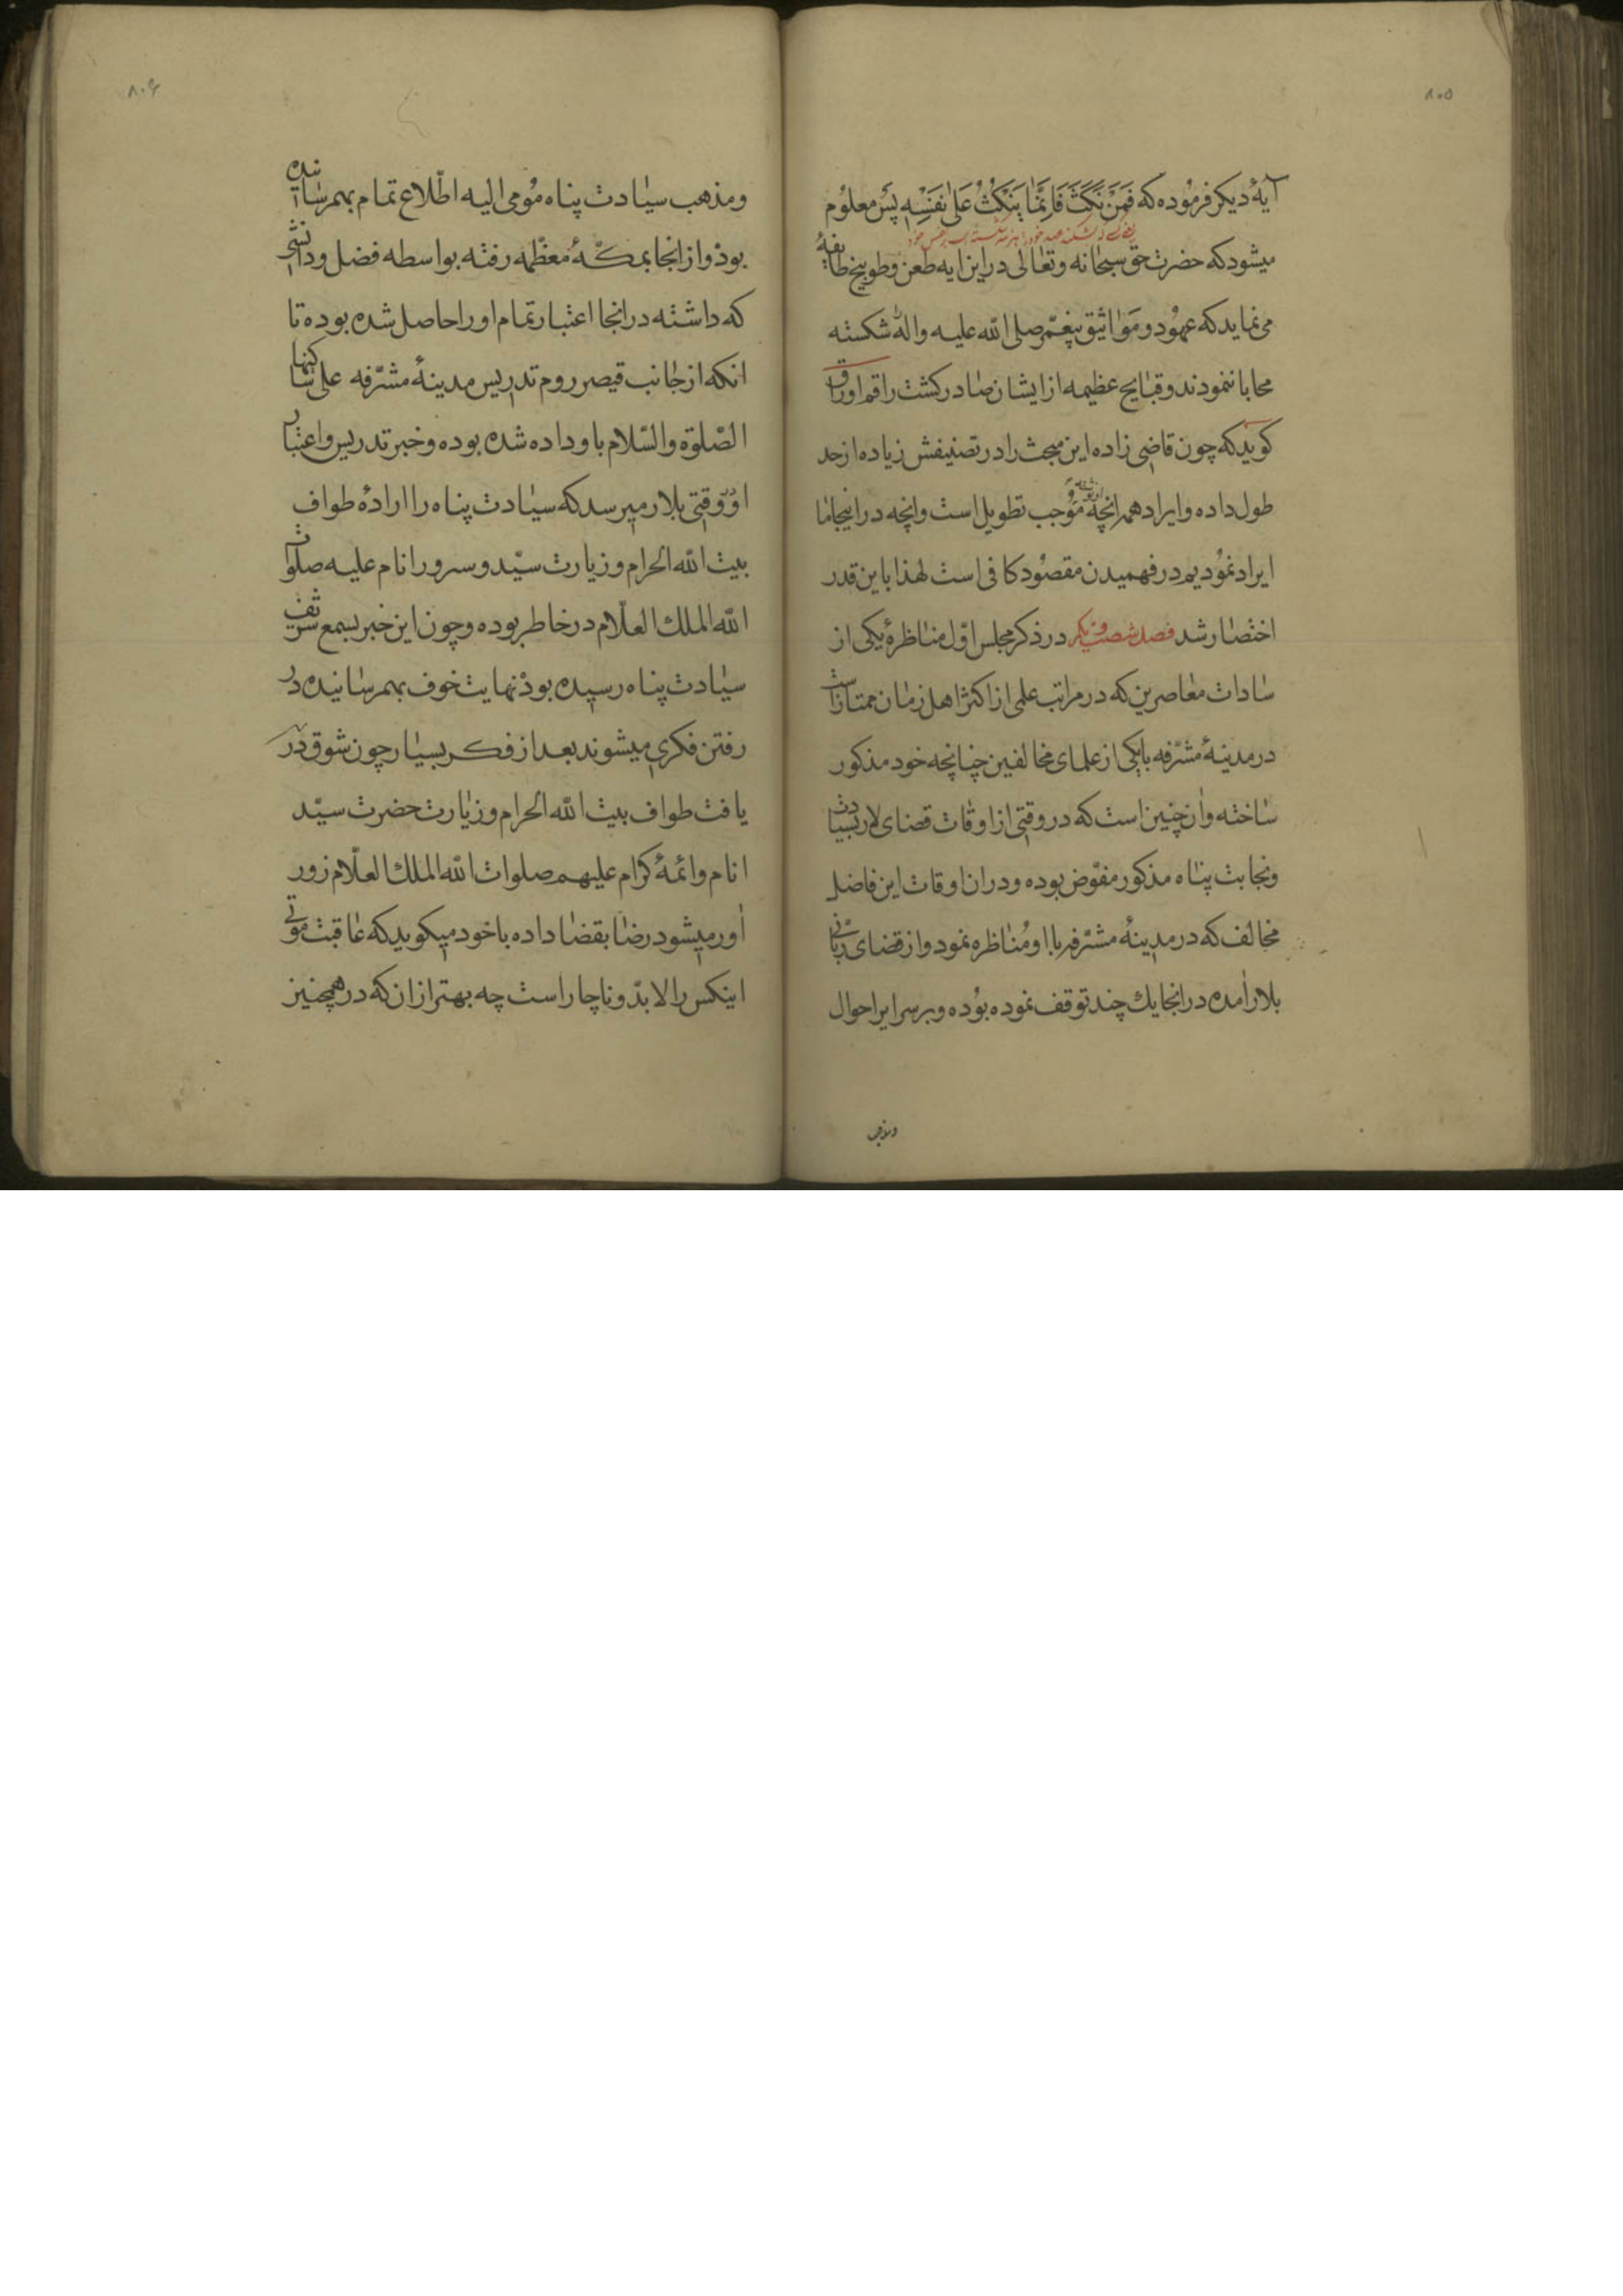 ۸۰۵
آیهٔ دیکر فرموده که فَمَنْ نَکَثَ فَاِنَّمَا یَنْکُثُ عَلیٰ نَفْسِهِ پس معلوم
میشود که حضرت حق سبحانه و تعالی در این ایه طعن و طوبیخ طایفهٔ
می نماید که عهود و مواثیق پیغمبر صلی الله علیه واله شکسته
محابا ننمودند و قبایح عظیمه از ایشان صادر کشت راقم اوراق
کوید که چون قاضی زاده این مبحث را در تصنیفش زیاده از حد
طول داده و ایراد همه انچه او نوشته موجب تطویل است وانچه در اینجا ما
ایراد نمودیم در فهمیدن مقصود کافی است لهذا باین قدر
اختصار شد فصل شصت و یکم در ذکر مجلس اوّل مناظرهٔ یکی از
سادات معاصرین که در مراتب علمی از اکثر اهل زمان ممتاز است
در مدینهٔ مشرّفه با یکی از علمای مخالفین چنانچه خود مذکور
ساخته وان چنین است که در وقتی از اوقات قضای لار بسیادت
ونجابت پناه مذکور مفوّض بوده و دران اوقات این فاضل
مخالف که در مدینهٔ مشرّفه با او مناظره نمود و از قضای ربّانی
بلار امده در انجا یك چند توقف نموده بوده و بر سرایر احوال
ومذهب
۸۰۶
ومذهب سیادت پناه مومی الیه اطّلاع تمام بهمرسانیده
بود و از انجا بمکّهٔ معظّمه رفته بواسطه فضل و دانشی
که داشته در انجا اعتبار تمام او را حاصل شده بوده تا
انکه از جانب قیصر روم تدریس مدینهٔ مشرّفه علی ساکنها
الصّلوة والسّلام باو داده شده بوده و خبر تدریس و اعتبار
او وقتی بلار میرسد که سیادت پناه را ارادهٔ طواف
بیت الله الحرام و زیارت سیّد و سرور انام علیه صلوات
الله الملك العلّام در خاطر بوده و چون این خبر بسمع شریف
سیادت پناه رسیده بود نهایت خوف بهمرسانیده در
رفتن فکری میشوند بعد از فکر بسیار چون شوق در
یافت طواف بیت الله الحرام و زیارت حضرت سیّد
انام وائمهٔ کرام علیهم صلوات الله الملك العلّام زور
اور میشود رضا بقضا داده با خود میکوید که عاقبت موتی
اینکس را لا بدّ و ناچار است چه بهتر از ان که در همچنین